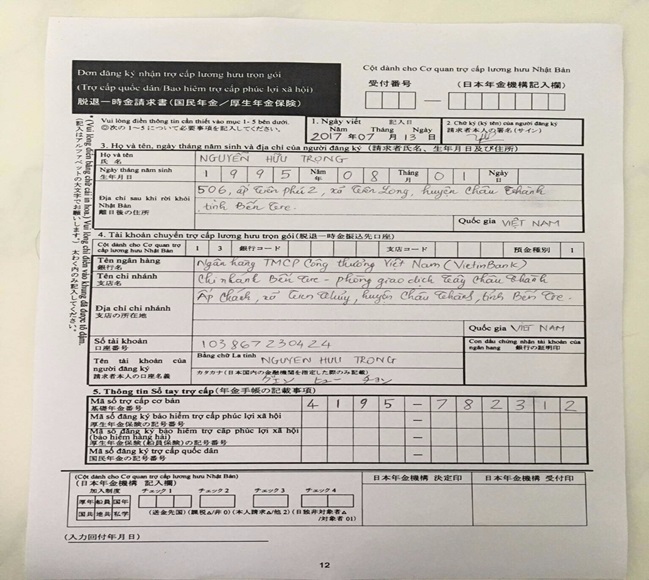 Đơn đăng ký nhận trợ cấp lương hưu trọn gói
(Trợ cấp quốc dân/Bảo hiểm trợ cấp phúc lợi xã hội)
脱退一時金請求書(国民年金/厚生年金保険)
Cột dành cho Cơ quan trợ cấp lương hưu Nhật Bản
受付番号 (日本年金機構記入欄)
Vui lòng điền thông tin cần thiết vào mục 1-5 bên dưới.
◎次の1~5について必要事項を記入してください。
1. Ngày viết 記入日
Năm Tháng Ngày
2017 年 07 月 13 日
2. Chữ ký (ký tên) của người đăng ký
請求者本人の署名(サイン)
3. Họ và tên, ngày tháng năm sinh và địa chỉ của người đăng ký (請求者氏名、生年月日及び住所)
Họ và tên
氏名
NGUYỄN HỮU TRỌNG
Ngày tháng năm sinh
生年月日
1 9 9 5 Năm 年 0 8 Tháng 月 0 1 Ngày 日
Địa chỉ sau khi rời khỏi Nhật Bản
離日後の住所
506, ấp Tiên phú 2, xã Tiên Long, huyện Châu Thành
tỉnh Bến Tre.
Quốc gia VIỆT NAM
4. Tài khoản chuyển trợ cấp lương hưu trọn gói (脱退一時金振込先口座)
Cột dành cho Cơ quan trợ cấp lương hưu Nhật Bản 1 3 銀行コード 支店コード 預金種別 1
Tên ngân hàng
銀行名
Ngân hàng TMCP Công thương Việt Nam (VietinBank)
Tên chi nhánh
支店名
Chi nhánh Bến Tre - phòng giao dịch Tây Châu Thành
Địa chỉ chi nhánh
支店の所在地
Ấp Chánh, xã Tiên Thủy, huyện Châu Thành, tỉnh Bến Tre.
Quốc gia VIỆT NAM
Số tài khoản
口座番号
103867230424
Con dấu chứng nhận tài khoản của ngân hàng 銀行の証明印
Tên tài khoản của người đăng ký
請求者本人の口座名義
Bảng chữ La tinh NGUYEN HUU TRONG
カタカナ(日本国内の金融機関を指定した際のみ記載)
5. Thông tin Sổ tay trợ cấp (年金手帳の記載事項)
Mã số trợ cấp cơ bản
基礎年金番号
4 1 9 5 - 7 8 2 3 1 2
Mã số đăng ký bảo hiểm trợ cấp phúc lợi xã hội
厚生年金保険の記号番号
Mã số đăng ký bảo hiểm trợ cấp phúc lợi xã hội (bảo hiểm hàng hải)
厚生年金保険(船員保険)の記号番号
Mã số đăng ký trợ cấp quốc dân
国民年金の記号番号
(Cột dành cho Cơ quan trợ cấp lương hưu Nhật Bản)
(日本年金機構 記入欄)
加入制度 チェック1 チェック2 チェック3 チェック4
厚年 船員 国年
国共 地共 私学
(送金先国) (課税△/非0) (本人請求△/他2) (日独非対象者△/対象者01)
日本年金機構 決定印
日本年金機構 受付印
(入力回付年月日)
12